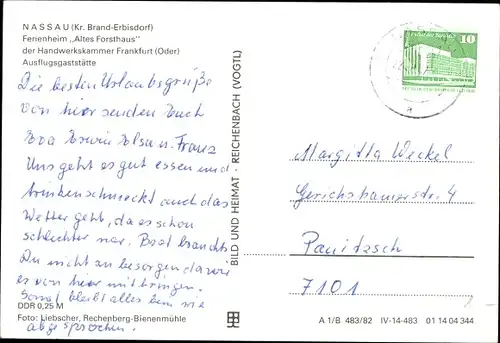 NASSAU (Kr. Brand-Erbisdorf)
Ferienheim „Altes Forsthaus"
der Handwerkskammer Frankfurt (Oder)
Ausflugsgaststätte
Die besten Urlaubsgrüße
von hier senden Euch
Eva Erwin Elsa u. Franz
Uns geht es gut essen und
trinken schmeckt auch das
Wetter geht, da es schon
schlechter war. Brot brauchst
Du nicht zu besorgen da wir
es von hier mitbringen.
Sonst bleibt alles beim wie
abgesprochen.
DDR 0,25 M
Foto: Liebscher, Rechenberg-Bienenmühle
BILD UND HEIMAT · REICHENBACH (VOGTL)
10
Margitta Weckel
Gerichshainerstr. 4
Panitzsch
7101
A 1/B 483/82 IV-14-483 01 14 04 344